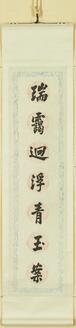 瑞靄迴浮青玉案